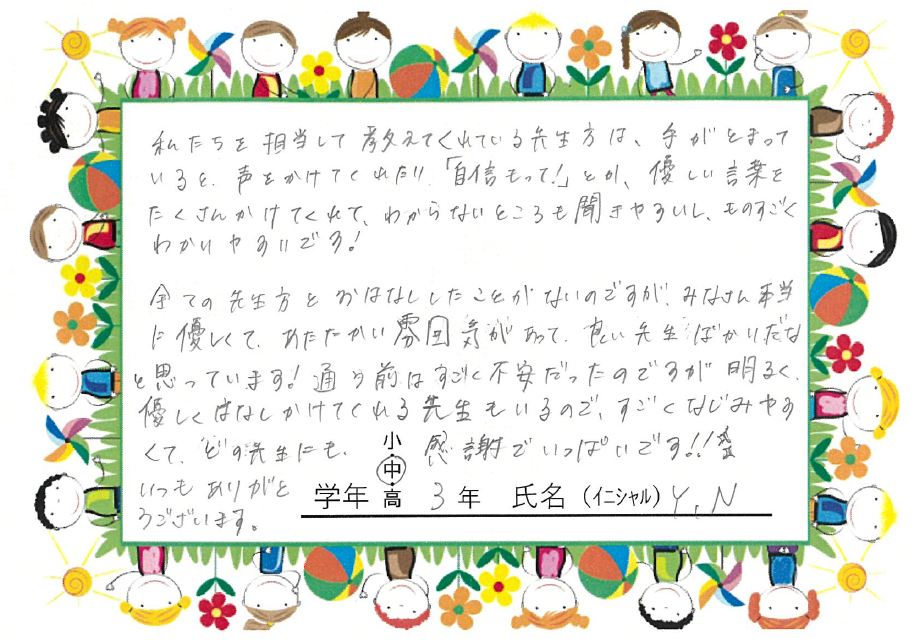 私たちを担当して教えてくれている先生方は、手がとまって
いると、声をかけてくれたり、「自信もって!」とか、優しい言葉を
たくさんかけてくれて、わからないところも聞きやすいし、ものすごく
わかりやすいです!
全ての先生方とおはなししたことがないのですが、みなさん本当
に優しくて、あたたかい雰囲気があって、良い先生ばかりだな
と思っています!通う前はすごく不安だったのですが明るく、
優しくはなしかけてくれる先生もいるので、すごくなじみやす
くて、どの先生にも、感謝でいっぱいです!!
いつもありがと
うございます。
学年 小・中・高 3年 氏名(イニシャル) Y.N